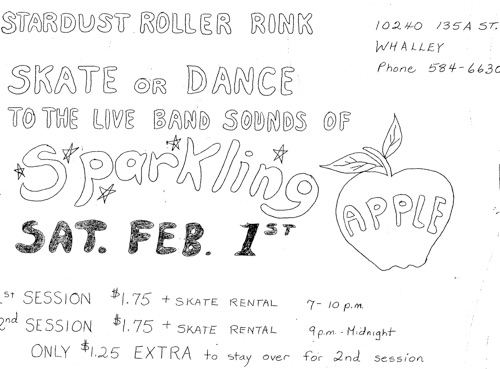 STARDUST ROLLER RINK
10240 135A ST.
WHALLEY
Phone 584-6630
SKATE OR DANCE
TO THE LIVE BAND SOUNDS OF
Sparkling
APPLE
SAT. FEB. 1ST
1st SESSION $1.75 + SKATE RENTAL 7-10 p.m.
2nd SESSION $1.75 + SKATE RENTAL 9pm-Midnight
ONLY $1.25 EXTRA to stay over for 2nd session